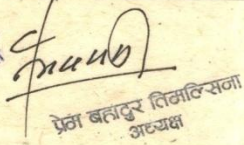 प्रेम बहादुर तिमल्सिना
अध्यक्ष